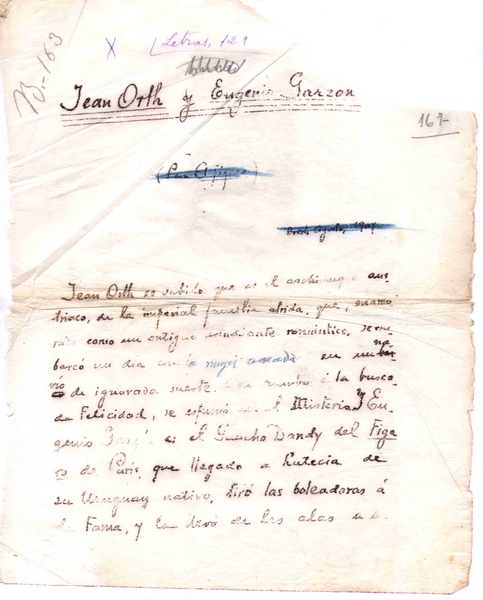 B.-163
X
Letras, 129
Jean Orth y Eugenio Garzon
167-
Agosto, 1907
Jean Orth es sabido que es el archiduque aus
triaco, de la imperial familia atrida, que, enamo
rado como un antiguo estudiante romántico, se em
barcó un dia con la mujer amada en un
de ignorada suerte. Con rumbo á la busca
Felicidad, se esfumó en el Misterio y Eu
genio Garzón es el Gaucho Dandy del Figa
ro de París, que llegado a Lutecia de
su Uruguay nativo, tiró las boleadoras á
la Fama, y la llevó de las alas